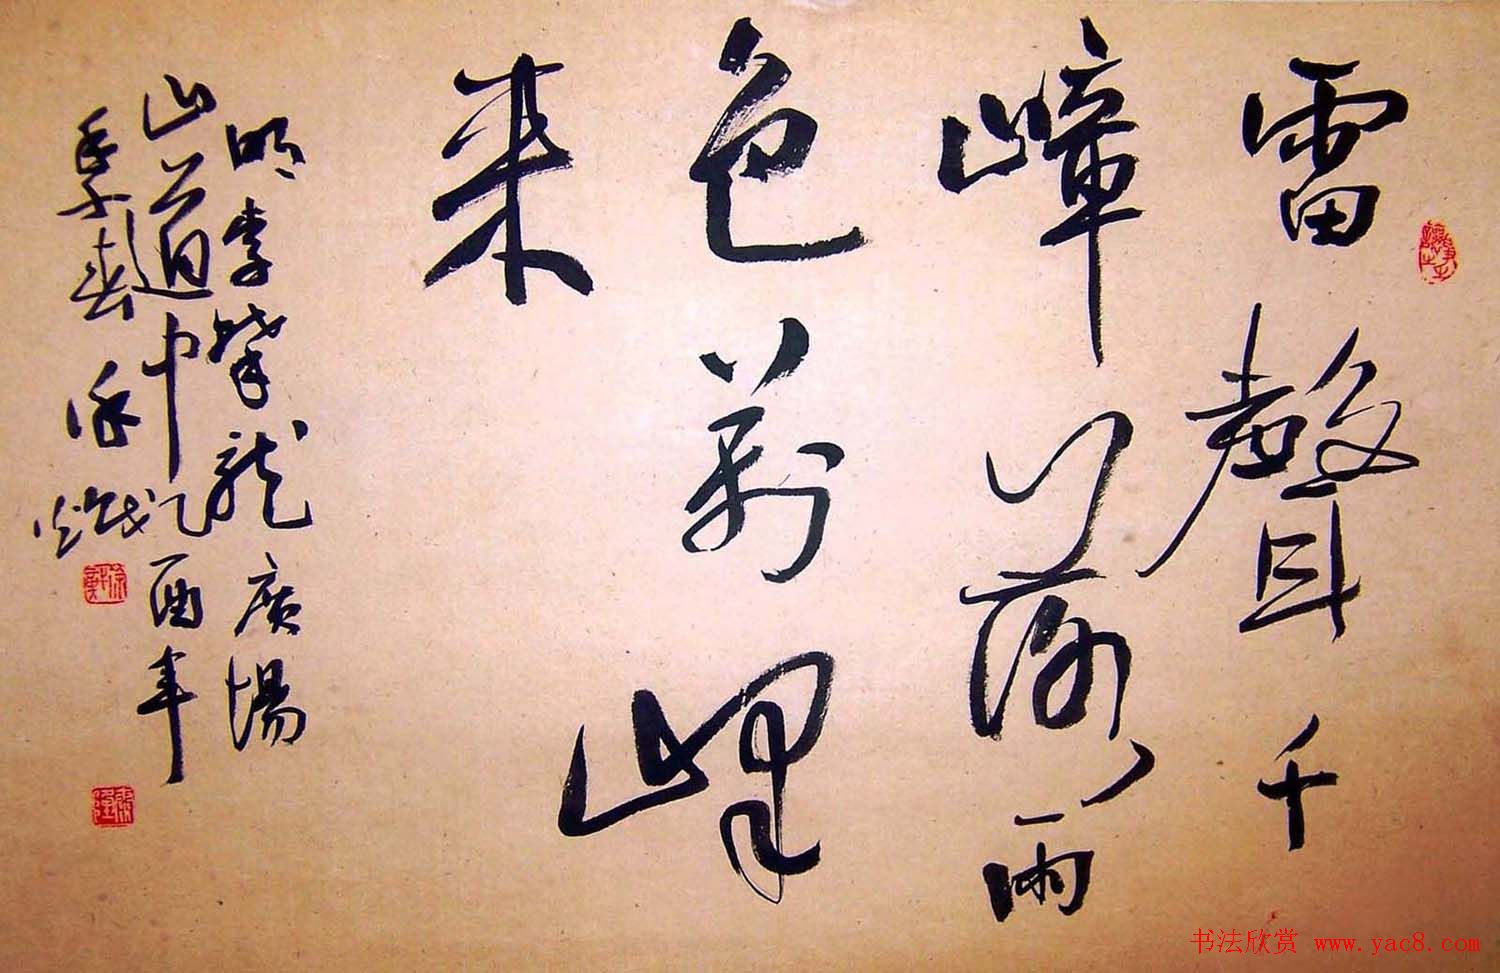 雷聲千
嶂落雨
色萬峰
来
明李攀龍廣陽
山道中乙酉年
季春徐
书法欣赏 www.yac8.com